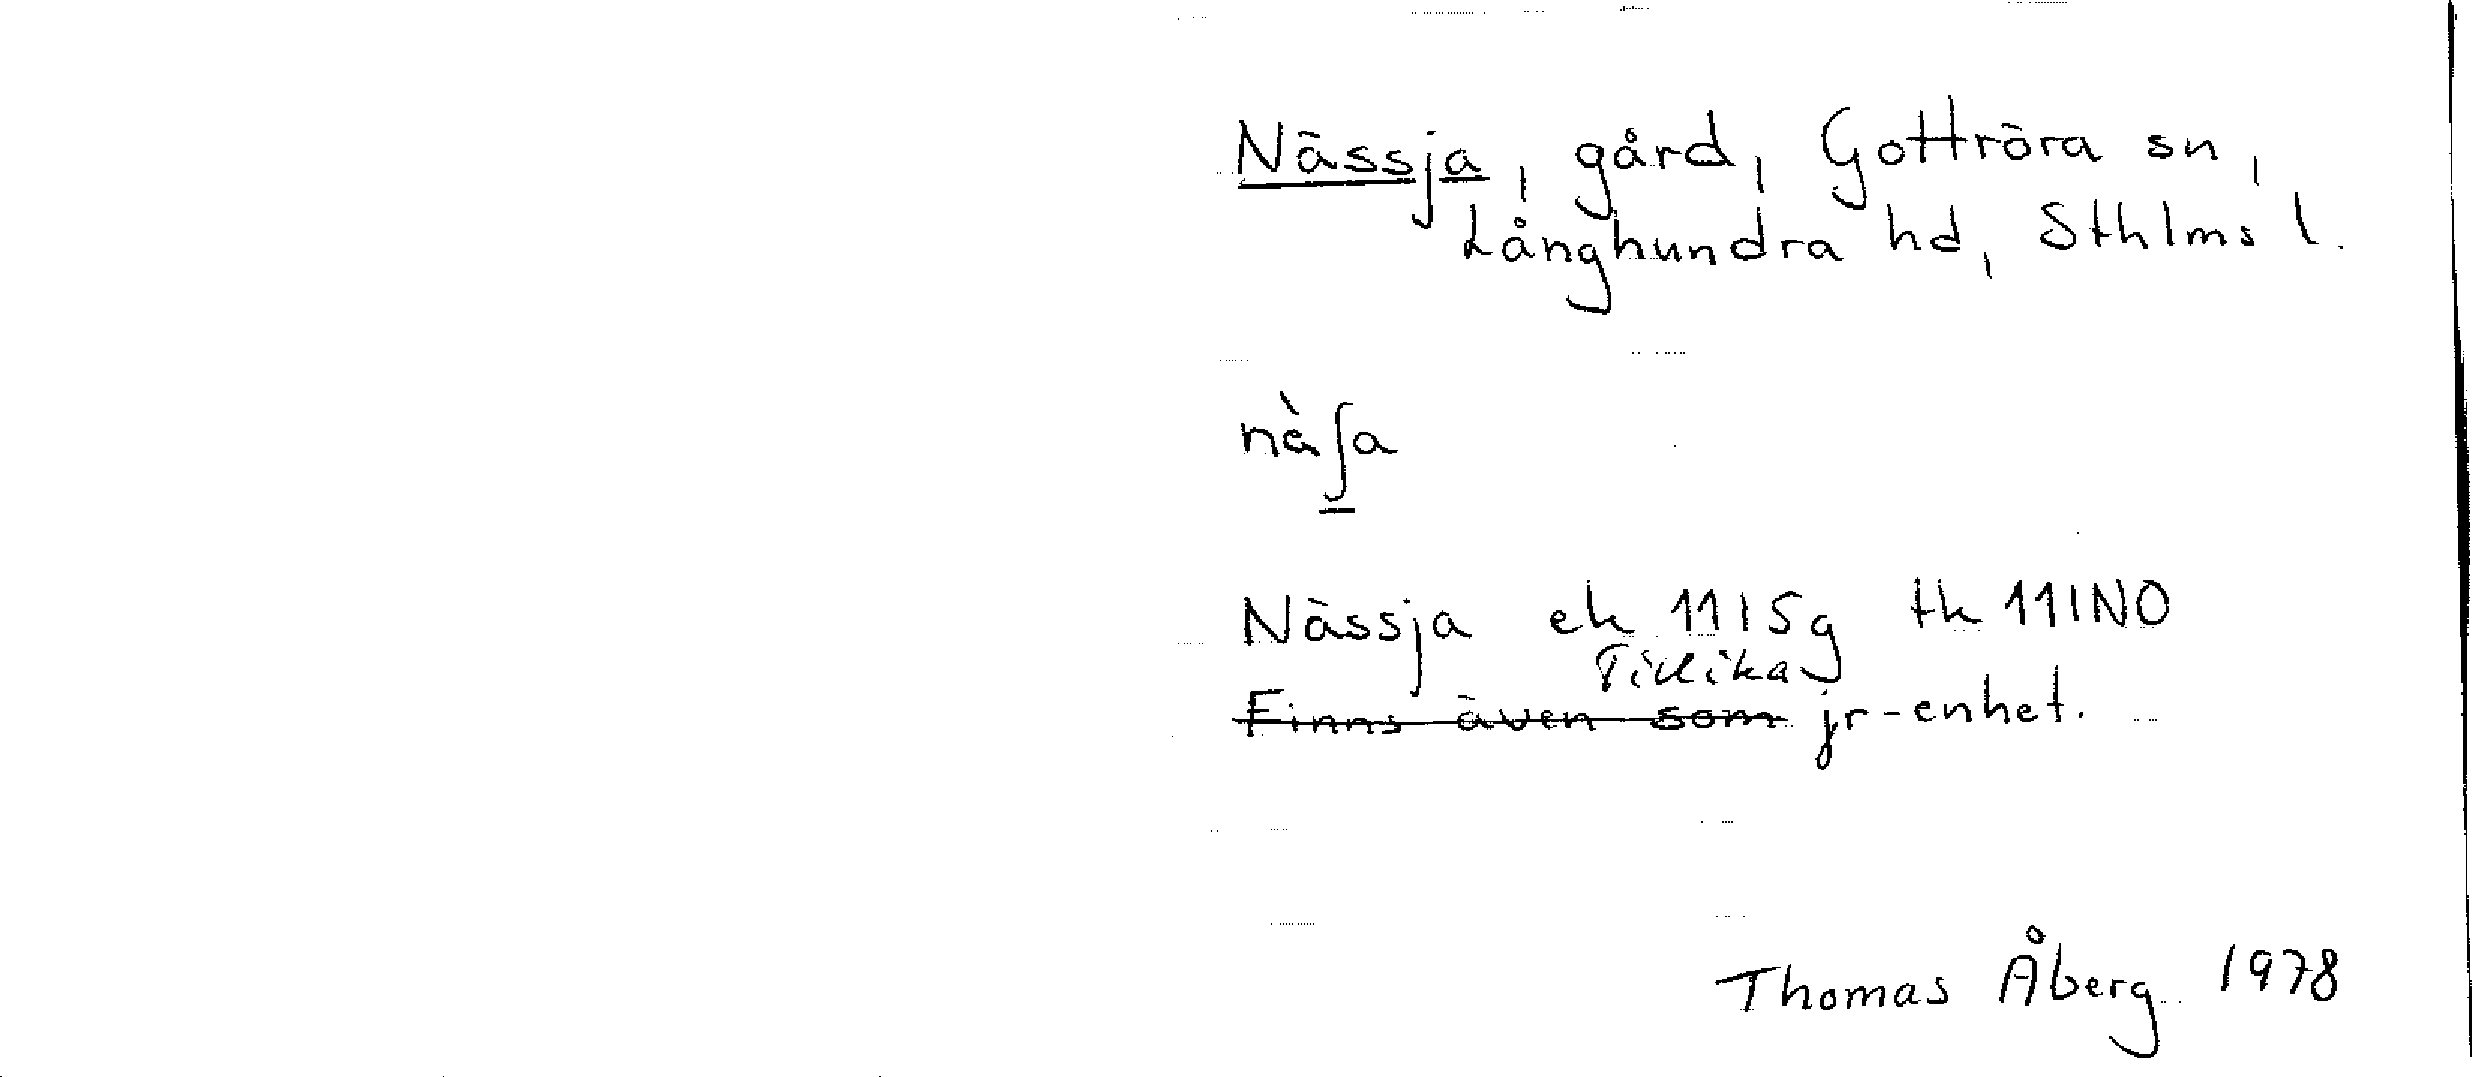 Nässja, gård, Gottröra sn,
Långhundra hd, Sthlms l.
nä̀ʃa
Nässja ek 11I5g tk 11INO
Tillika
Finns även som jr-enhet.
Thomas Åberg 1978